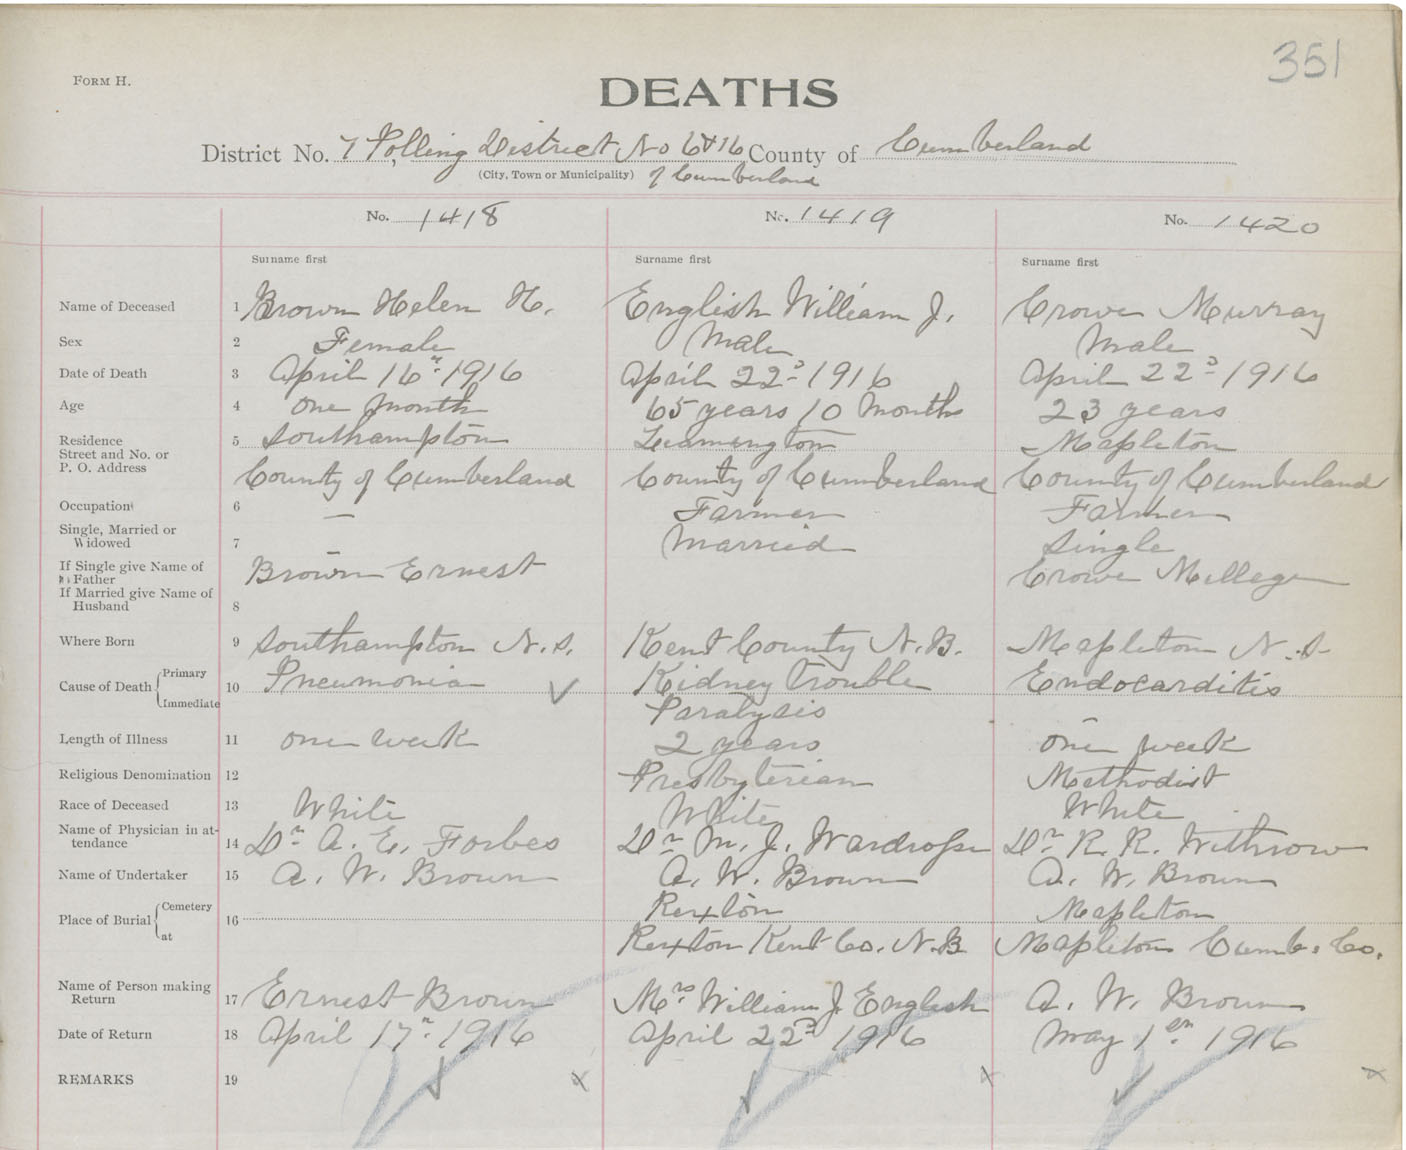 351
FORM H.
DEATHS
District No. 7 Polling District No 6 & 16 County of Cumberland
(City, Town or Municipality) of Cumberland
No. 1418 No. 1419 No. 1420
Surname first Surname first Surname first
Name of Deceased 1 Brown Helen H. English William J. Crowe Murray
Sex 2 Female Male Male
Date of Death 3 April 16th 1916 April 22d 1916 April 22d 1916
Age 4 One month 65 years 10 months 23 years
Residence 5 Southampton Leamington Mapleton
Street and No. or
P. O. Address County of Cumberland County of Cumberland County of Cumberland
Occupation 6 — Farmer Farmer
Single, Married or
Widowed 7 — Married Single
If Single give Name of
Father Brown Ernest Crowe Milledge
If Married give Name of
Husband 8
Where Born 9 Southampton N.S. Kent County N.B. Mapleton N.S
Cause of Death Primary 10 Pneumonia Kidney Trouble Endocarditis
Immediate Paralysis
Length of Illness 11 one week 2 years one week
Religious Denomination 12 Presbyterian Methodist
Race of Deceased 13 White White White
Name of Physician in at-
tendance 14 Dr A. E. Forbes Dr M. J. Wardrope Dr R. R. Withrow
Name of Undertaker 15 A. W. Brown A. W. Brown A. W. Brown
Place of Burial Cemetery 16 Rexton Mapleton
at Rexton Kent Co. N.B Mapleton Cumb. Co.
Name of Person making
Return 17 Ernest Brown Mrs William J. English A. W. Brown
Date of Return 18 April 17th 1916 April 22d 1916 May 1st 1916
REMARKS 19